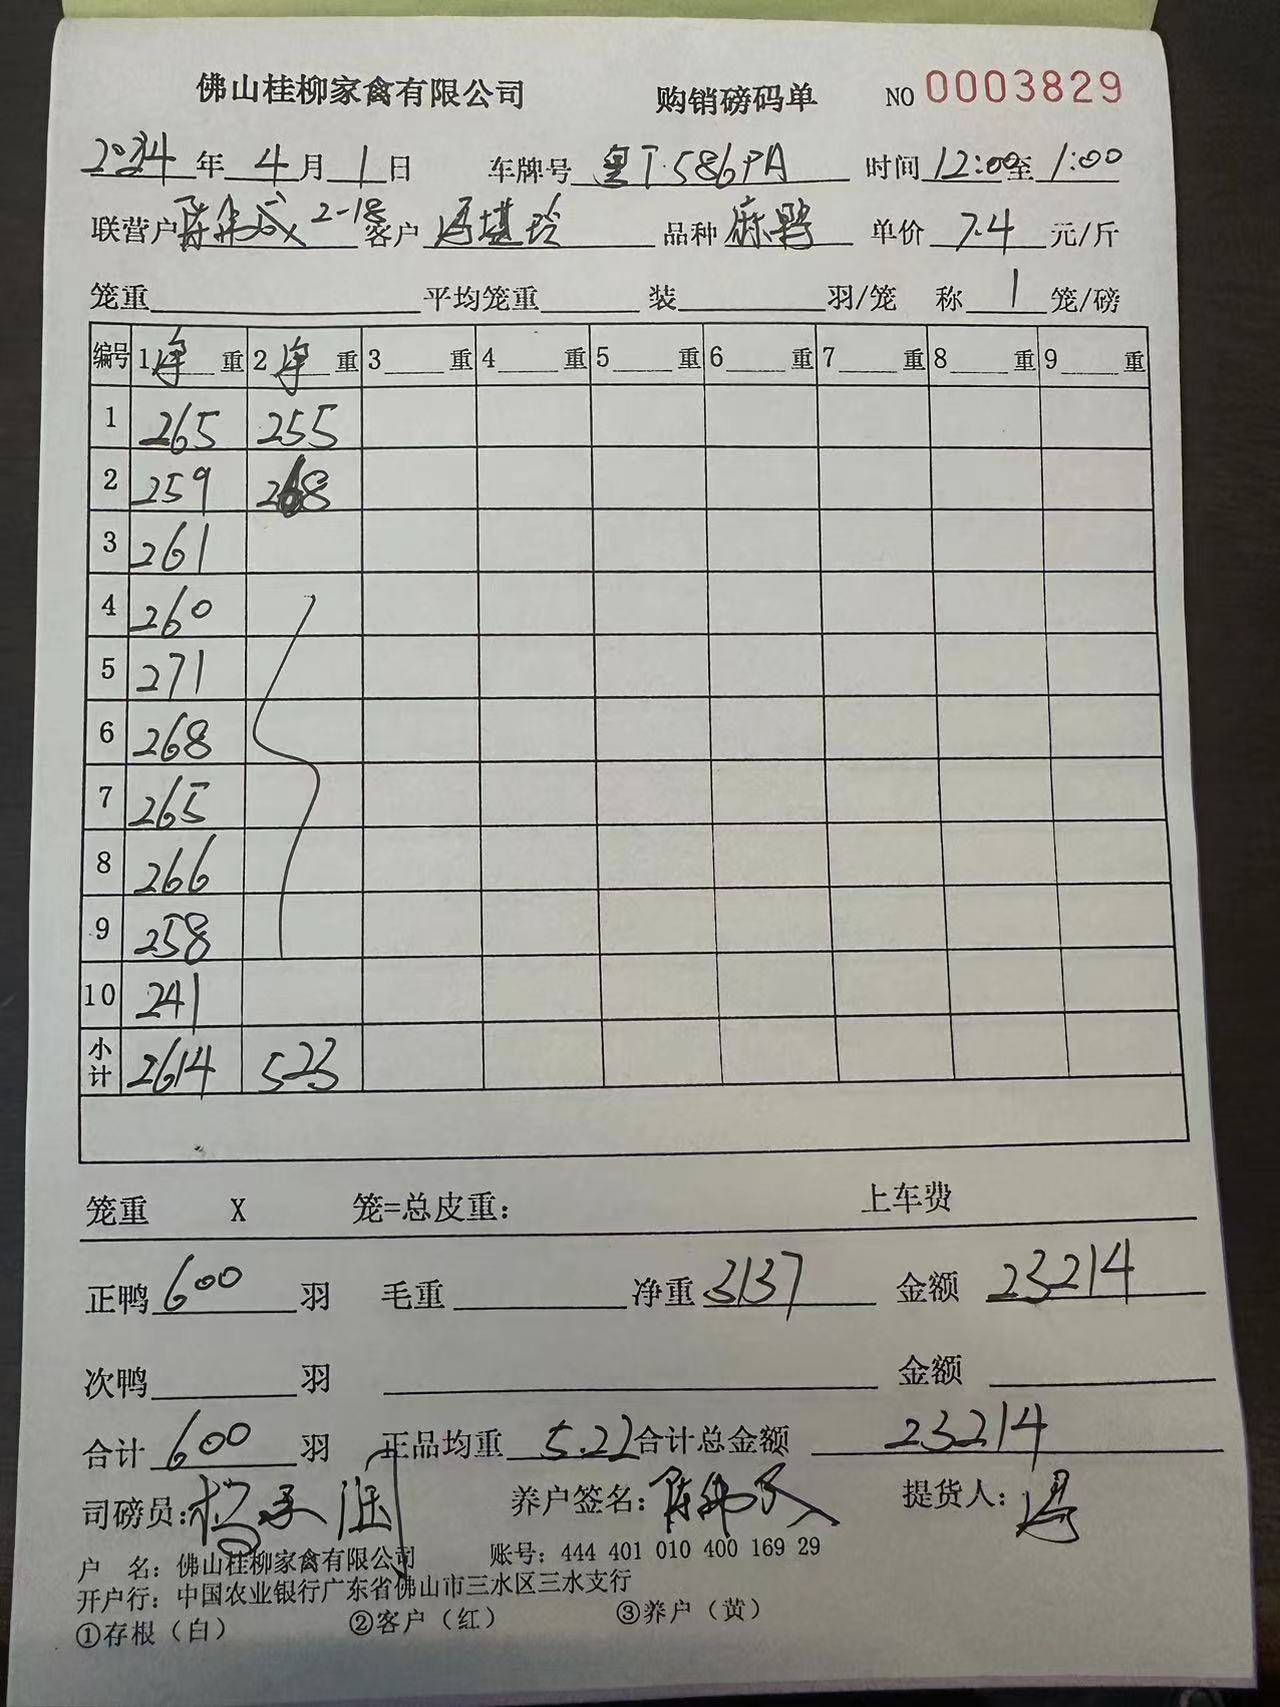 佛山桂柳家禽有限公司 购销磅码单 NO 0003829
2024年 4月 1日 车牌号 粤T·586PA 时间 12:00至 1:00
联营户 陈伟 2-18 客户 冯堪玲 品种 麻鸭 单价 7.4 元/斤
笼重 平均笼重 装 羽/笼 称 1 笼/磅
编号 1净重 2净重 3 重 4 重 5 重 6 重 7 重 8 重 9 重
1 265 255
2 259 268
3 261
4 260
5 271
6 268
7 265
8 266
9 258
10 241
小计 2614 523
笼重 X 笼=总皮重: 上车费
正鸭 600 羽 毛重 净重 3137 金额 23214
次鸭 羽 金额
合计 600 羽 正品均重 5.22 合计总金额 23214
司磅员: 杨 养户签名: 陈伟 提货人: 冯
户 名: 佛山桂柳家禽有限公司 账号: 444 401 010 400 169 29
开户行: 中国农业银行广东省佛山市三水区三水支行
①存根（白） ②客户（红） ③养户（黄）